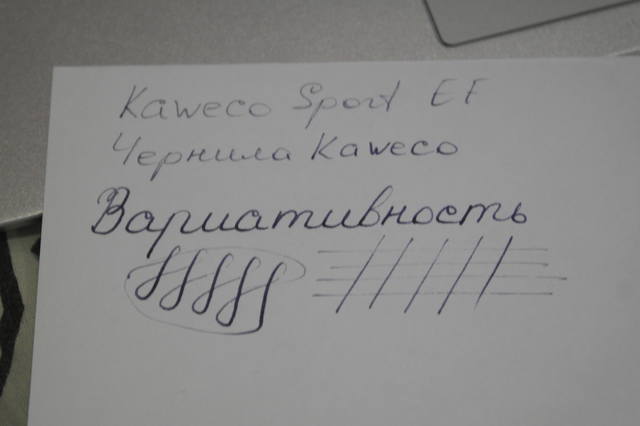 Kaweco Sport EF
Чернила Kaweco
Вариативность